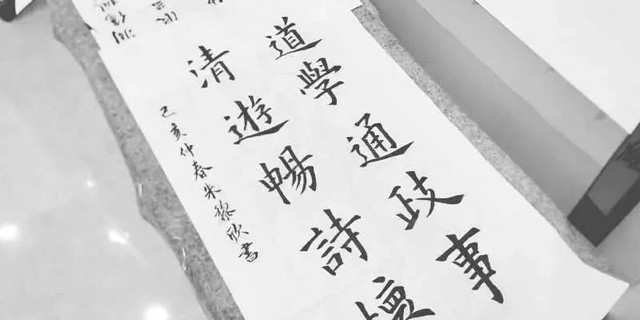 道學通政事
清遊暢詩懷
己亥仲春朱黎欣書